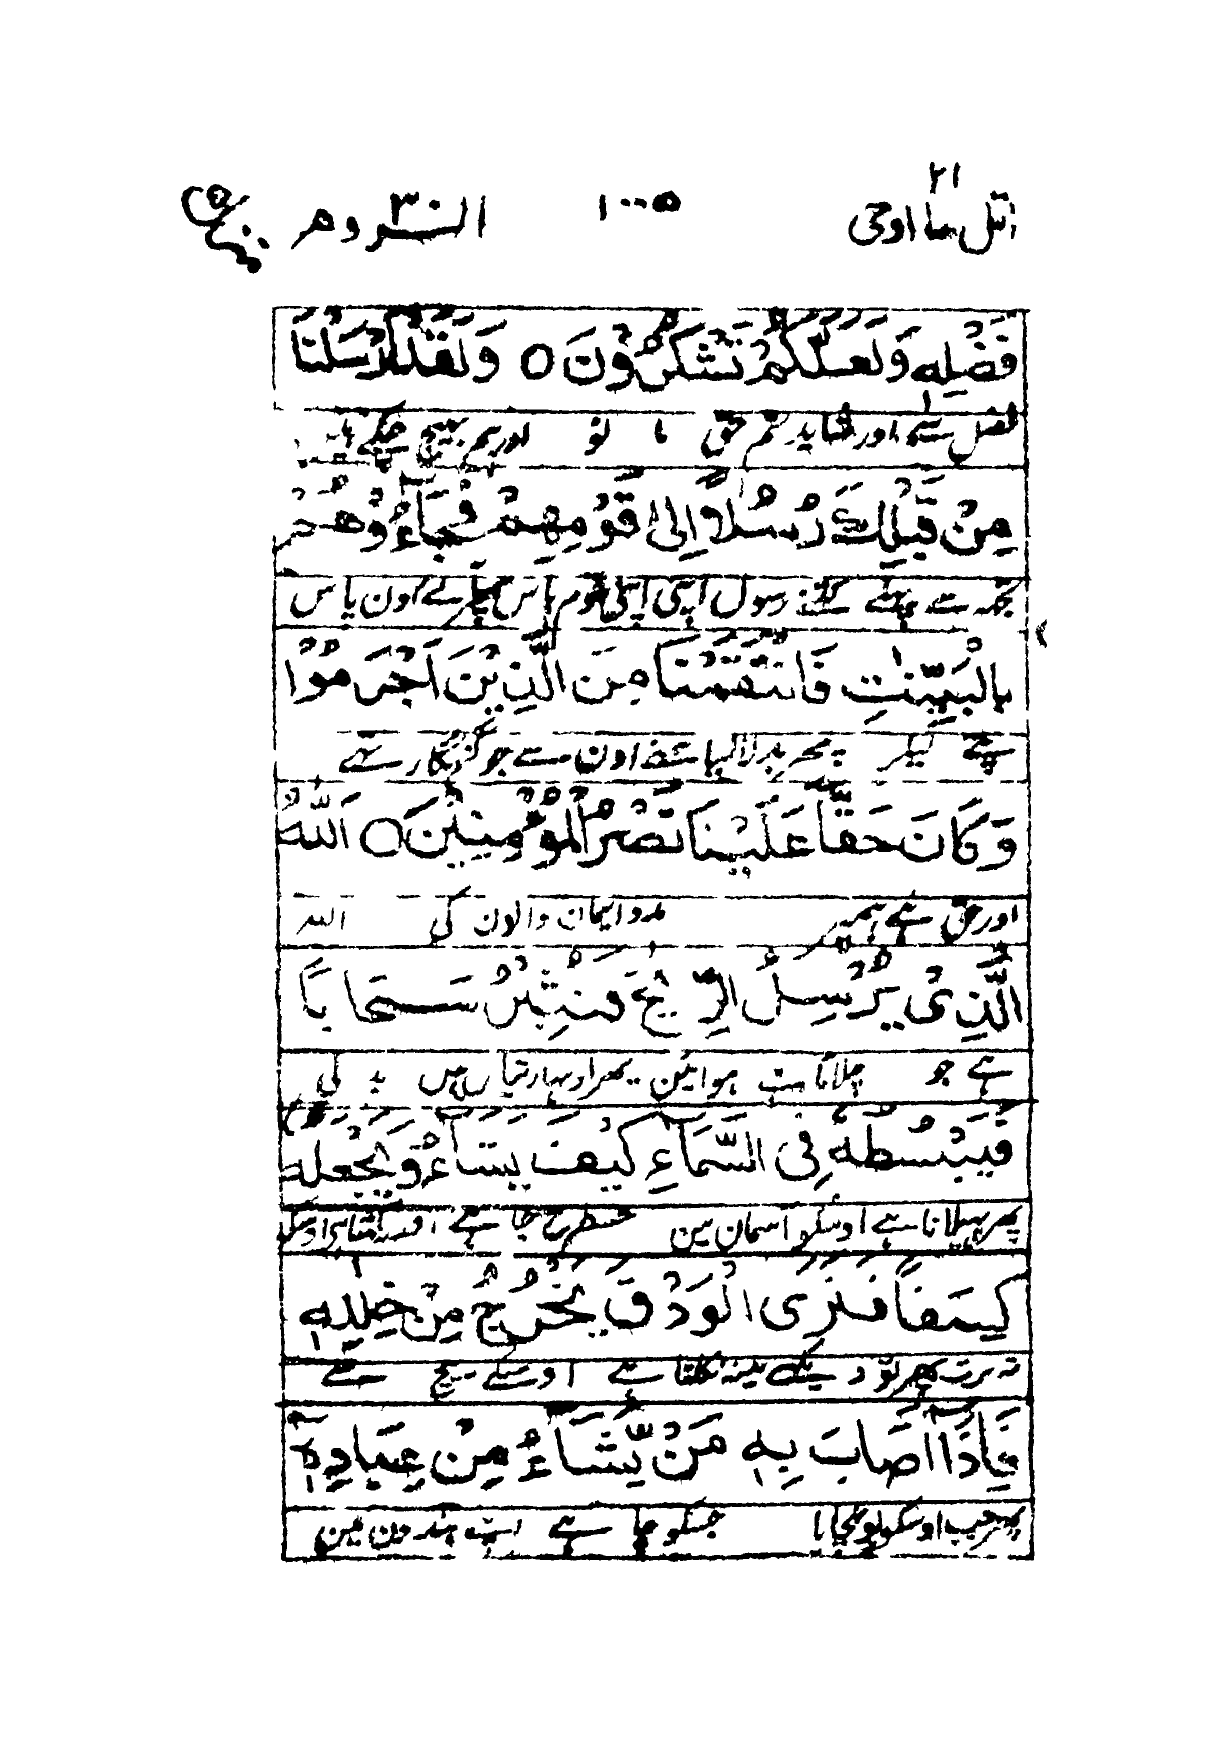 ٢١
اتل ما اوحی ١٠٠٥ الروم ٣٠
فَضْلِهٖ وَلَعَلَّكُمْ تَشْكُرُوْنَ ○ وَلَقَدْ اَرْسَلْنَا
فضل سے اور شاید تم حق ما نو اور ہم بھیج چکے ہیں
مِنْ قَبْلِكَ رُسُلًا اِلٰى قَوْمِهِمْ فَجَآءُوْهُمْ
تجھہ سے پہلے کتنے رسول اپنی اپنی قوم پاس اون پاس
بِالْبَيِّنٰتِ فَانْتَقَمْنَا مِنَ الَّذِيْنَ اَجْرَمُوْا
پتے لیکر پھر بدلا لیا اون سے جو گنہگار تھے
وَكَانَ حَقًّا عَلَيْنَا نَصْرُ الْمُؤْمِنِيْنَ ○ اَللّٰهُ
اور حق ہے ہمپر مدد ایمان والون کی اللہ
الَّذِىْ يُرْسِلُ الرِّيٰحَ فَتُثِيْرُ سَحَابًا
ہے جو چلاتا ہے ہوائین پھر اوبھارتیاں ہیں بد لی
فَيَبْسُطُهٗ فِى السَّمَآءِ كَيْفَ يَشَآءُ وَيَجْعَلُهٗ
پھر پھیلاتا ہے اوسکو آسمان مین جسطرح چا ہے
كِسَفًا فَتَرَى الْوَدْقَ يَخْرُجُ مِنْ خِلٰلِهٖ
تہ برت پھر تو د یکھے مینہ نکلتا ہے اوسکے بیچ سے
فَاِذَآ اَصَابَ بِهٖ مَنْ يَّشَآءُ مِنْ عِبَادِهٖٓ
پھر جب اوسکو پہنچایا جسکو چا ہے اپنے بندون مین